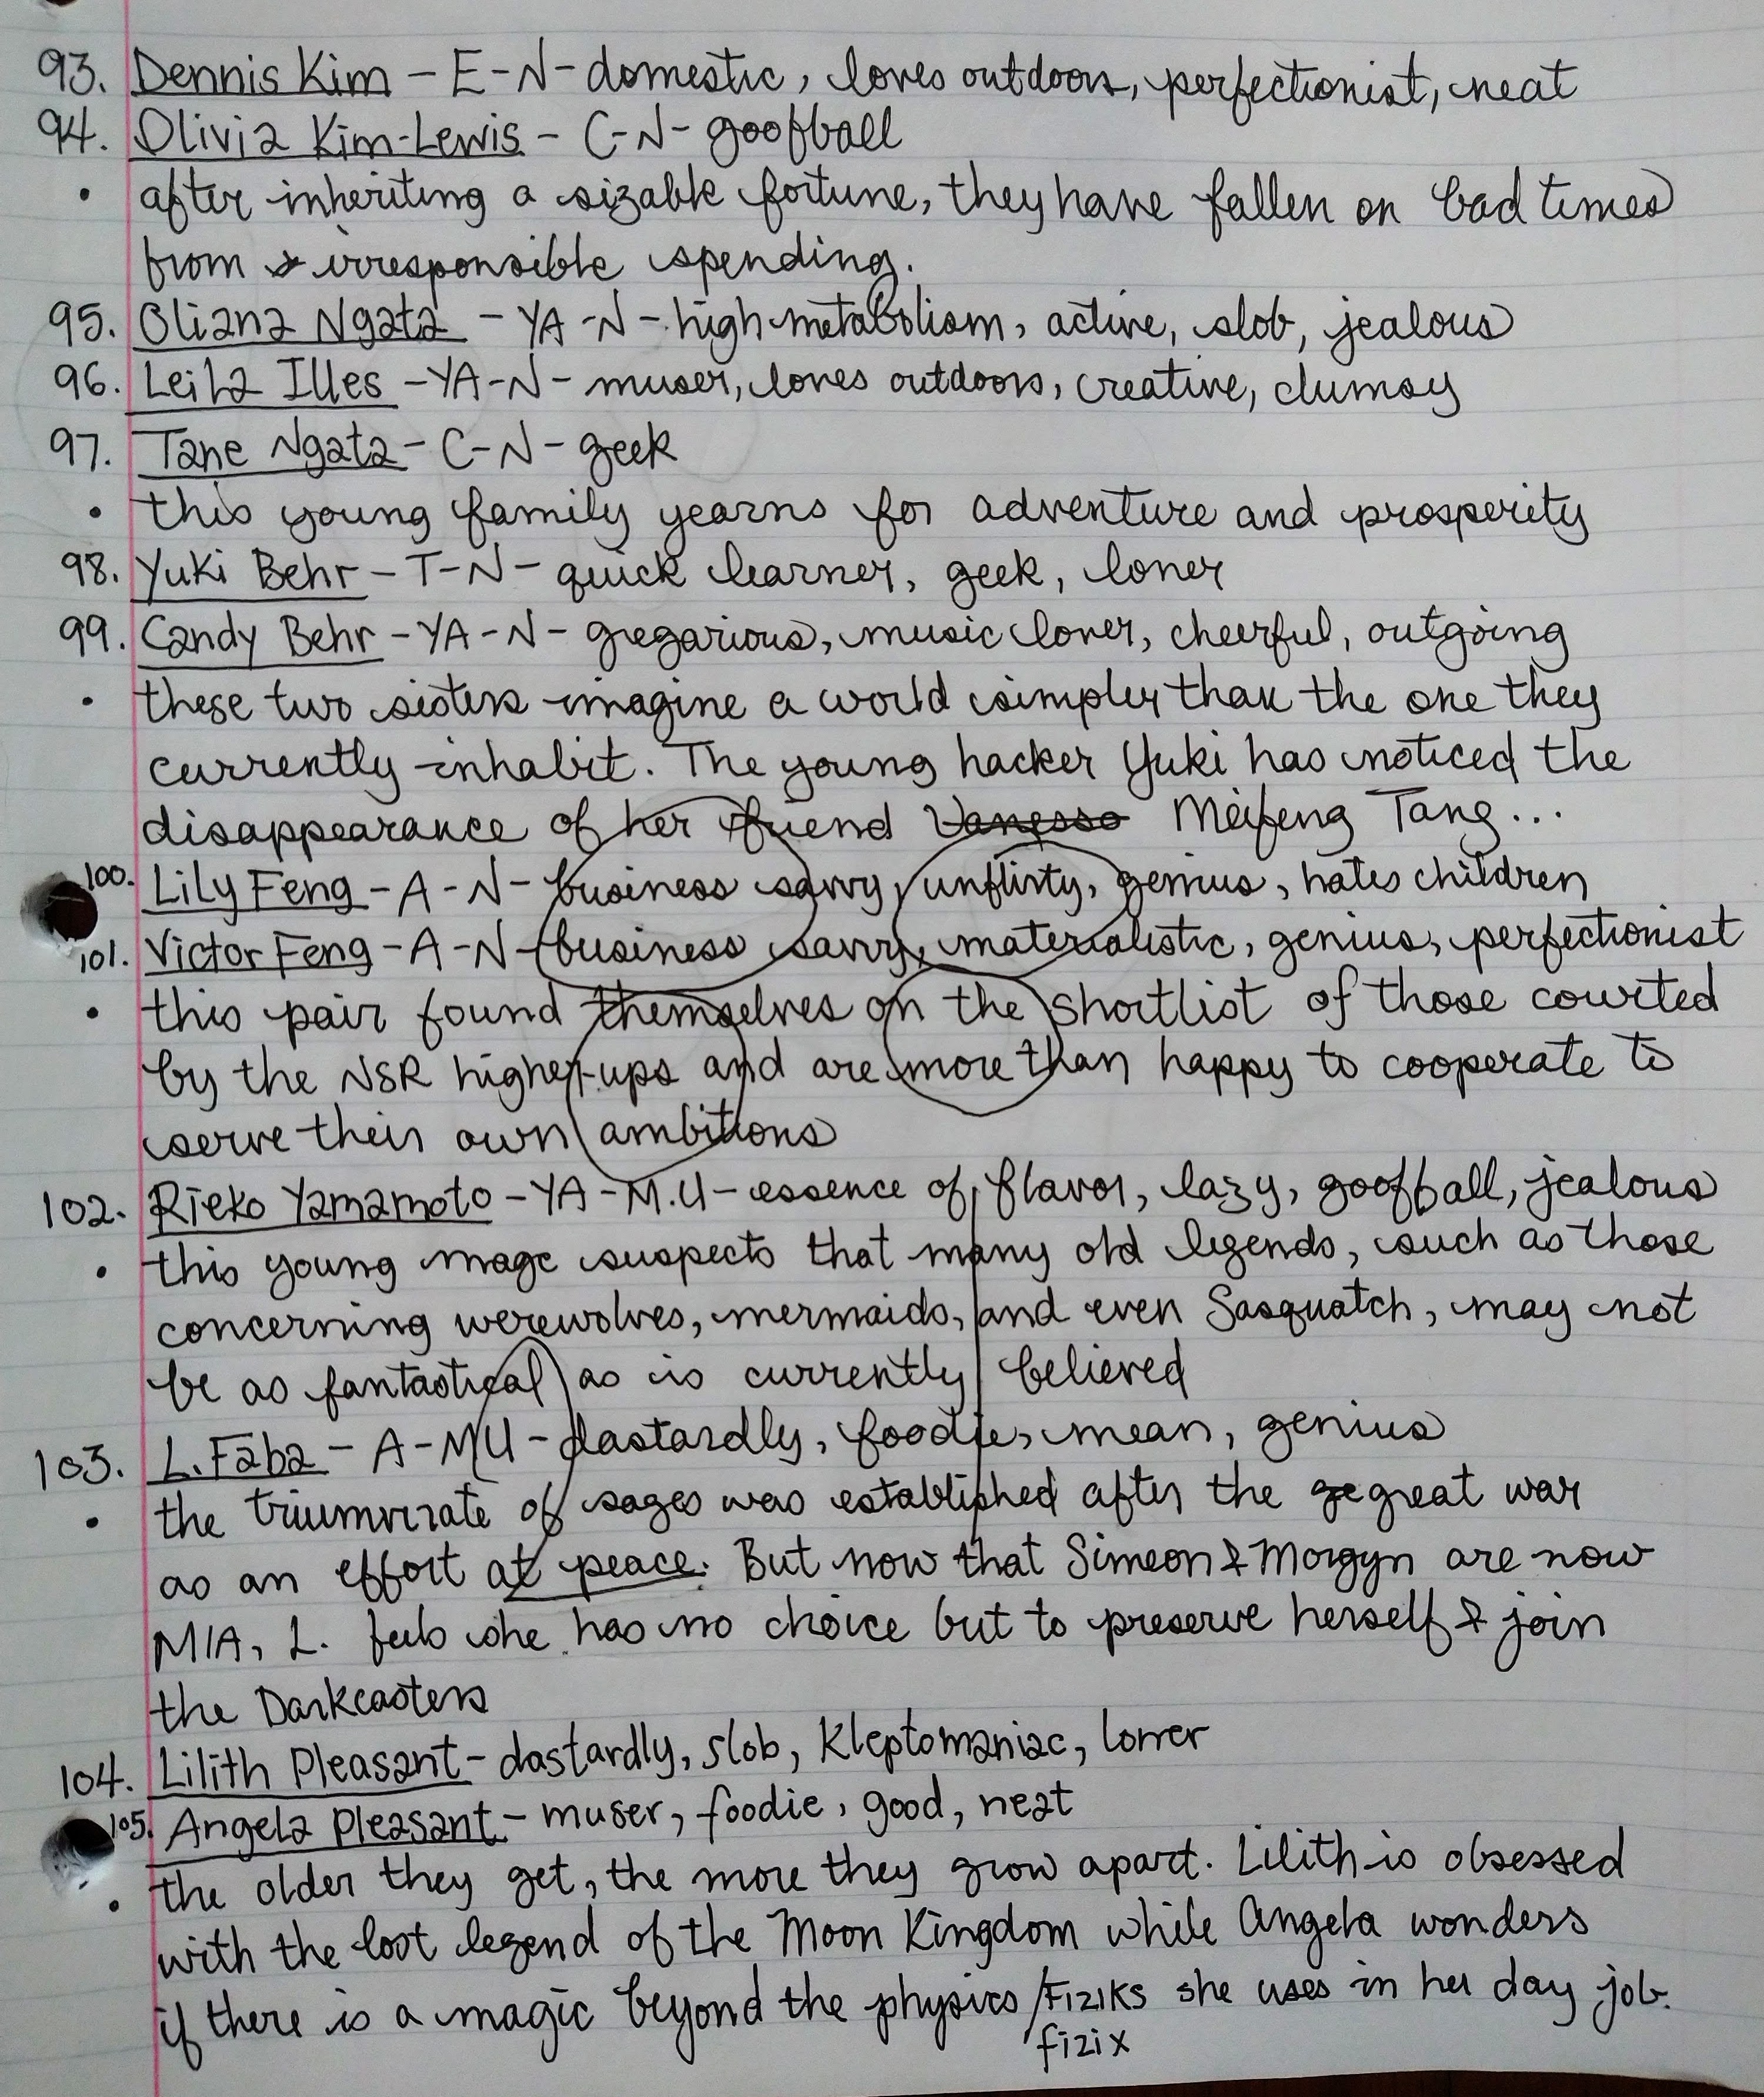 93. Dennis Kim - E-N- domestic, loves outdoors, perfectionist, neat
94. Olivia Kim-Lewis - C-N- goofball
• after inheriting a sizable fortune, they have fallen on bad times
from irresponsible spending.
95. Oliana Ngata - YA-N- high metabolism, active, slob, jealous
96. Leila Illes - YA-N- muser, loves outdoors, creative, clumsy
97. Tane Ngata - C-N- geek
• this young family yearns for adventure and prosperity
98. Yuki Behr - T-N- quick learner, geek, loner
99. Candy Behr - YA-N- gregarious, music lover, cheerful, outgoing
• these two sisters imagine a world simpler than the one they
currently inhabit. The young hacker Yuki has noticed the
disappearance of her friend Vanessa Meifeng Tang...
100. Lily Feng - A-N- business savvy, unflirty, genius, hates children
101. Victor Feng - A-N- business savvy, materialistic, genius, perfectionist
• this pair found themselves on the shortlist of those courted
by the NSR higher-ups and are more than happy to cooperate to
serve their own ambitions
102. Rieko Yamamoto - YA-M.U- essence of flavor, lazy, goofball, jealous
• this young mage suspects that many old legends, such as those
concerning werewolves, mermaids, and even Sasquatch, may not
be as fantastical as is currently believed
103. L. Faba - A-MU- dastardly, foodie, mean, genius
• the triumvirate of sages was established after the ge great war
as an effort at peace. But now that Simeon & Morgyn are now
MIA, L. feels she has no choice but to preserve herself & join
the Darkcasters
104. Lilith Pleasant - dastardly, slob, kleptomaniac, loner
105. Angela Pleasant - muser, foodie, good, neat
• the older they get, the more they grow apart. Lilith is obsessed
with the lost legend of the Moon Kingdom while Angela wonders
if there is a magic beyond the physics/Fiziks she uses in her day job.
fizix